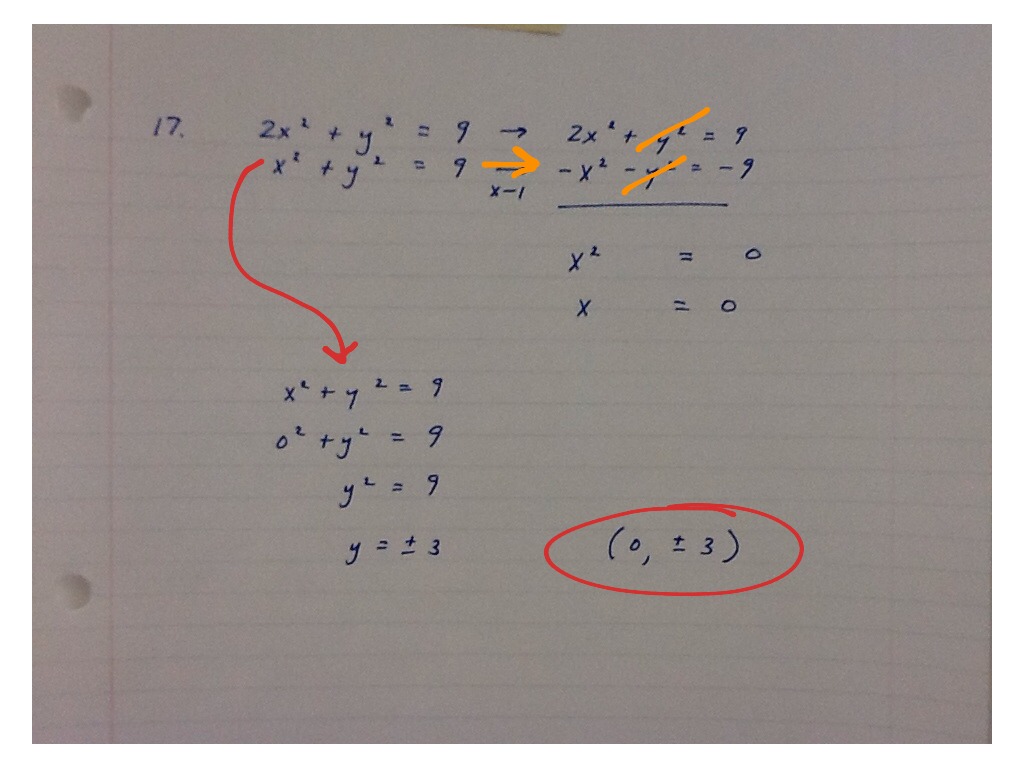 17. 2x² + y² = 9 → 2x² + y² = 9
x² + y² = 9 → x-1 -x² - y² = -9
x² = 0
x = 0
x² + y² = 9
0² + y² = 9
y² = 9
y = ± 3 (0, ± 3)